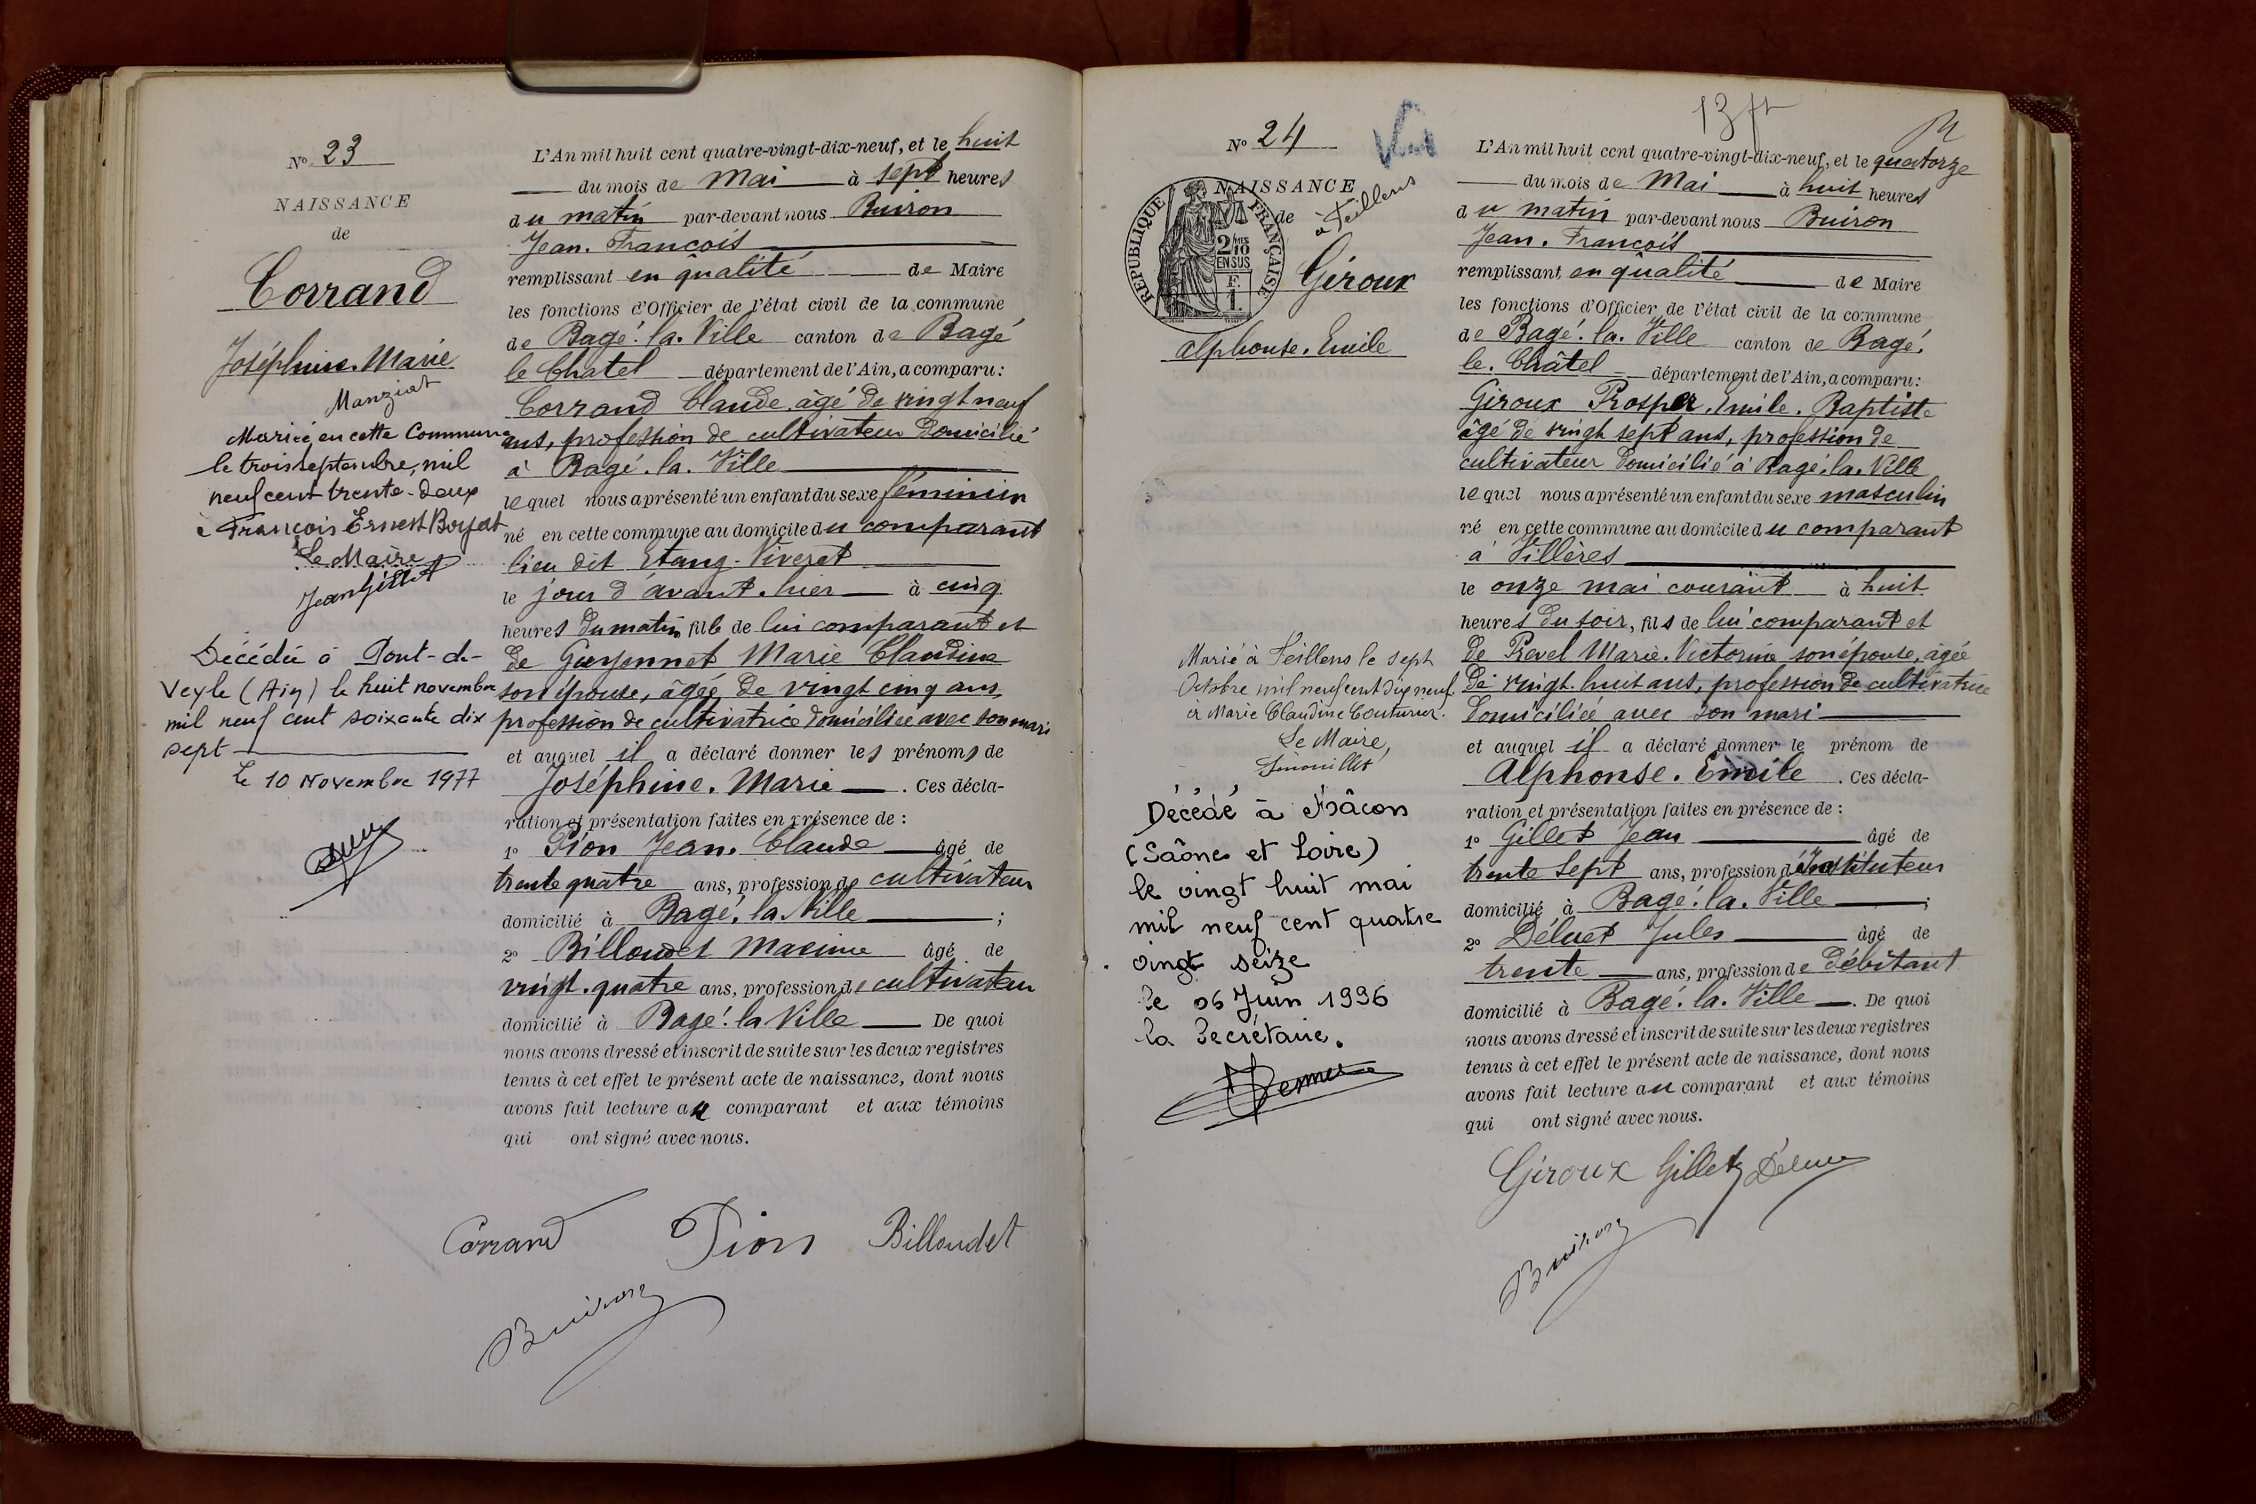 N° 23
NAISSANCE
de
Corrand
Joséphine. Marie
Manziat
Mariée en cette Commune
le trois septembre, mil
neuf cent trente-deux
à François Ernest Boyat
Le Maire
Jean Gillet
Décédée à Pont-de-
Veyle (Ain) le huit novembre
mil neuf cent soixante dix
sept
Le 10 Novembre 1977
L'An mil huit cent quatre-vingt-dix-neuf, et le huit
du mois de Mai à sept heures
du matin par-devant nous Buiron
Jean. François
remplissant en qualité de Maire
les fonctions d'Officier de l'état civil de la commune
de Bagé. la. Ville canton de Bagé
le Chatel département de l'Ain, a comparu:
Corrand Claude, âgé de vingt neuf
ans, profession de cultivateur domicilié
à Bagé. la. Ville
lequel nous a présenté un enfant du sexe féminin
né en cette commune au domicile du comparant
lieu dit Etang-Viveret
le jour d'avant. hier à cinq
heures du matin, fille de lui comparant et
de Guyennet Marie Claudine
son épouse, âgée de vingt cinq ans,
profession de cultivatrice domiciliée avec son mari
et auquel il a déclaré donner les prénoms de
Joséphine. Marie. Ces décla-
ration et présentation faites en présence de :
1° Pion Jean. Claude âgé de
trente quatre ans, profession de cultivateur
domicilié à Bagé. la. Ville ;
2° Billoudet Maxime âgé de
vingt. quatre ans, profession de cultivateur
domicilié à Bagé. la Ville De quoi
nous avons dressé et inscrit de suite sur les deux registres
tenus à cet effet le présent acte de naissance, dont nous
avons fait lecture au comparant et aux témoins
qui ont signé avec nous.
Corrand Pion Billoudet
Buiron
N° 24
Vu
NAISSANCE
de
à Feillens
RÉPUBLIQUE FRANÇAISE
2/10
EN SUS
F.
1.
Giroux
Alphonse. Emile
Marié à Feillens le sept
Octobre mil neuf cent dix neuf
à Marie Claudine Couturier.
Le Maire,
Décédé à Mâcon
(Saône et Loire)
le vingt huit mai
mil neuf cent quatre
vingt seize
le 06 Juin 1996
la Secrétaire.
L'An mil huit cent quatre-vingt-dix-neuf, et le quatorze
du mois de Mai à huit heures
du matin par-devant nous Buiron
Jean. François
remplissant en qualité de Maire
les fonctions d'Officier de l'état civil de la commune
de Bagé. la. Ville canton de Bagé.
le. Châtel département de l'Ain, a comparu:
Giroux Prosper. Emile. Baptiste
âgé de vingt sept ans, profession de
cultivateur domicilié à Bagé. la. Ville
lequel nous a présenté un enfant du sexe masculin
né en cette commune au domicile du comparant
à Villères
le onze mai courant à huit
heures du soir, fils de lui comparant et
de Revel Marie. Victorine son épouse, âgée
de vingt. huit ans, profession de cultivatrice
domiciliée avec son mari
et auquel il a déclaré donner le prénom de
Alphonse. Emile. Ces décla-
ration et présentation faites en présence de :
1° Gillet Jean âgé de
trente sept ans, profession d'Instituteur
domicilié à Bagé. la. Ville ;
2° Déluet Jules âgé de
trente ans, profession de débitant
domicilié à Bagé. la. Ville. De quoi
nous avons dressé et inscrit de suite sur les deux registres
tenus à cet effet le présent acte de naissance, dont nous
avons fait lecture au comparant et aux témoins
qui ont signé avec nous.
Giroux Gillet Déluet
Buiron